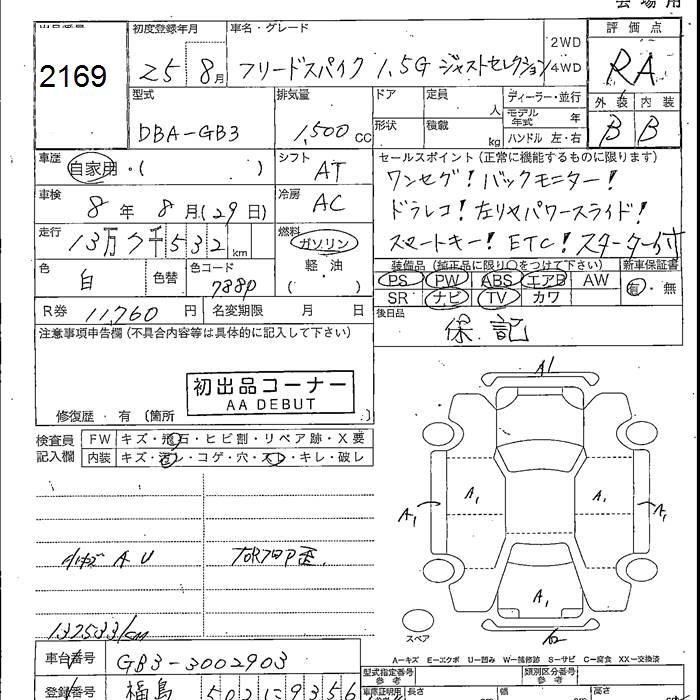 会場用
出品番号 初度登録年月 車名・グレード 評価点
2169 25 8月 フリードスパイク 1.5G ジャストセレクション 2WD 4WD RA
型式 排気量 ドア 定員 人 ディーラー・並行 外装 内装
DBA-GB3 1,500cc 形状 積載 kg モデル年式 年 ハンドル 左・右 B B
車歴 自家用・( ) シフト AT セールスポイント(正常に機能するものに限ります)
ワンセグ!バックモニター!
車検 8年 8月(29日) 冷房 AC ドラレコ!左リヤパワースライド!
走行 13万7千532km 燃料 ガソリン スマートキー!ETC!スターター付
軽・油 ( )
色 白 色替 色コード 788P 装備品(純正品に限り○をつけて下さい) 新車保証書
PS PW ABS エアB AW 有・無
SR ナビ TV カワ
R券 11,760円 名変期限 月 日 後日品 保.記
注意事項申告欄(不具合内容等は具体的に記入して下さい)
初出品コーナー
AA DEBUT
修復歴・有〔箇所 〕
A1
検査員記入欄 FW キズ・飛石・ヒビ割・リペア跡・X要
内装 キズ・汚レ・コゲ・穴・スレ・キレ・破レ
A1 A1 A1 A1
A U
A1
132533/km
スペア
A=キズ E=エクボ U=凹み W=補修跡 S=サビ C=腐食 XX=交換済
車台番号 GB3-3002903 型式指定番号 参考 類別区分番号 参考
登録番号 福島 502 に 9356 長さ 幅 高さ